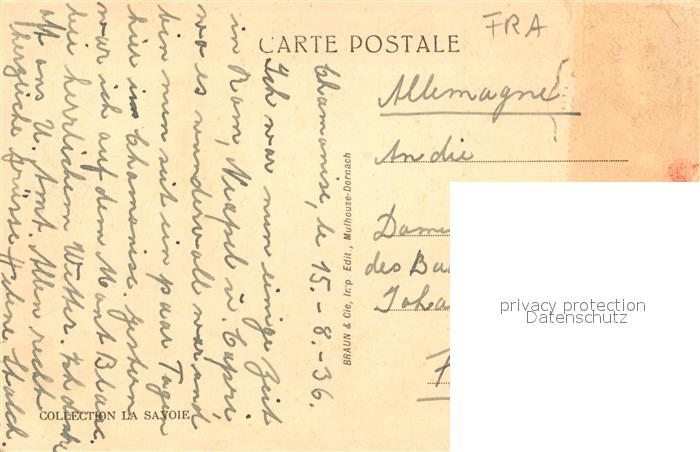 FRA
CARTE POSTALE
Chamonise, le 15.-8.-36.
Ich war nun einige Zeit
in Rom, Neapel u. Capri
wo es wundervoll war und
bin nun seit ein paar Tagen
hier in Chamonise. Gestern
war ich auf dem Mont Blanc
bei herrlichem Wetter. Ich denke
oft ans U. Amt. Allen recht
herzliche Grüsse Helene
BRAUN & Cie, Imp. Edit., Mulhouse-Dornach
Allemagne
An die
Dame
des Ba
Joha
COLLECTION LA SAVOIE
privacy protection
Datenschutz